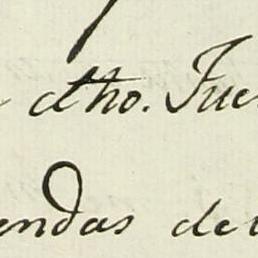 dho. Jue
endas de